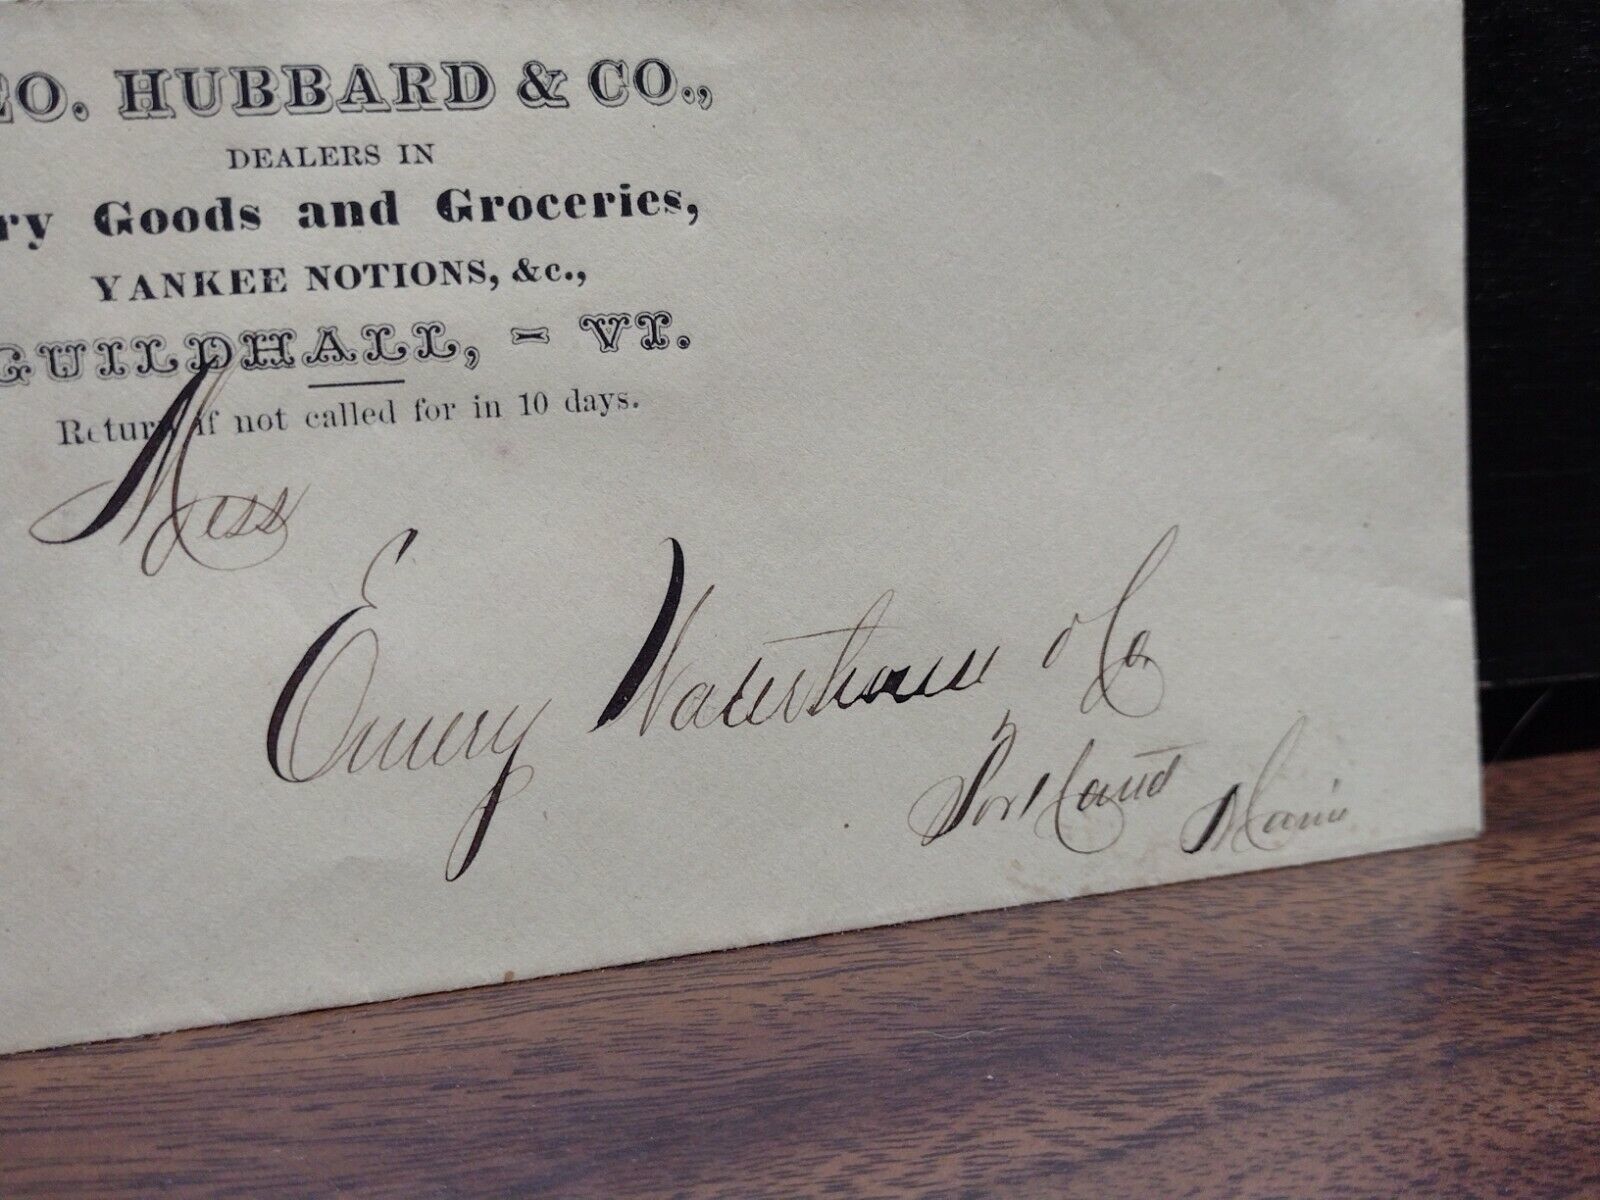 EO. HUBBARD & CO.,
DEALERS IN
ry Goods and Groceries,
YANKEE NOTIONS, &c.,
GUILDHALL, - VT.
Return if not called for in 10 days.
Mess
Emery Waterhouse & Co.
Portland Maine